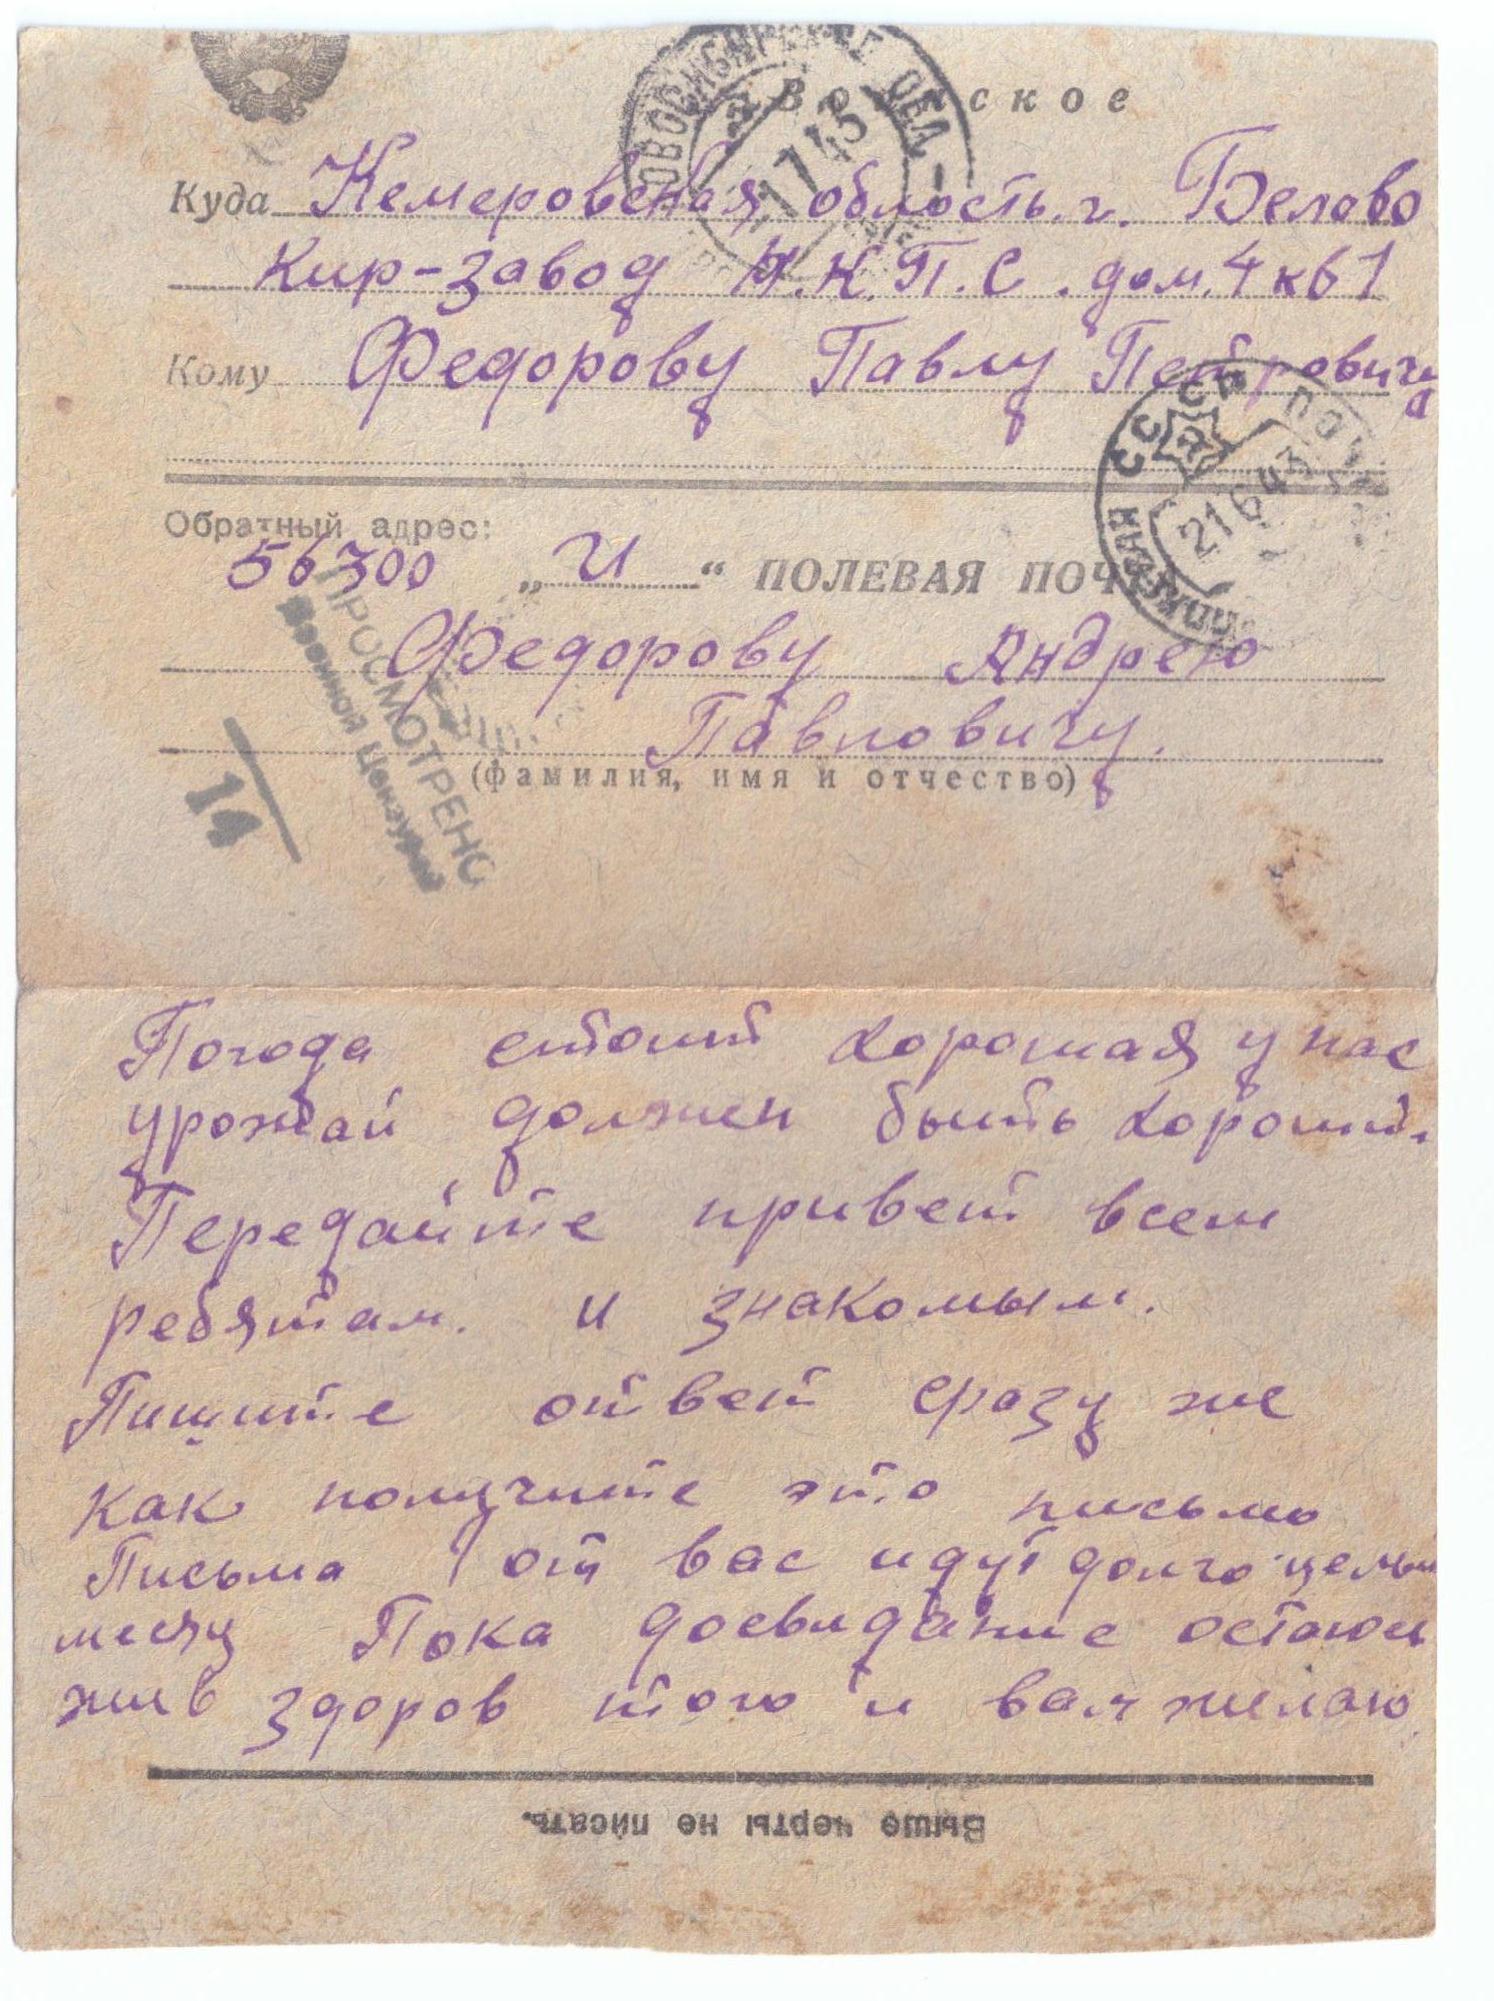 Воинское
НОВОСИБИРСКОЕ ОБЛ
1 7 43
Куда Кемеровская область. г. Белово
Кир-завод Н.К.П.С. дом. 4 кв 1
Кому Федорову Павлу Петровичу
СССР ПОЧТА
21 6 43
Обратный адрес:
56700 „И“ ПОЛЕВАЯ ПОЧТА
Федорову Андрею
Павловичу.
(фамилия, имя и отчество)
ПРОСМОТРЕНО
Военной Цензурой
14
Погода стоит хорошая у нас
урожай должен быть хороший.
Передайте привет всем
ребятам. и знакомым.
Пишите ответ сразу же
как получите это письмо
Письма от вас идут долго целый
месяц Пока досвидание остаюсь
жив здоров того и вам жилаю.
Выше черты не писать.